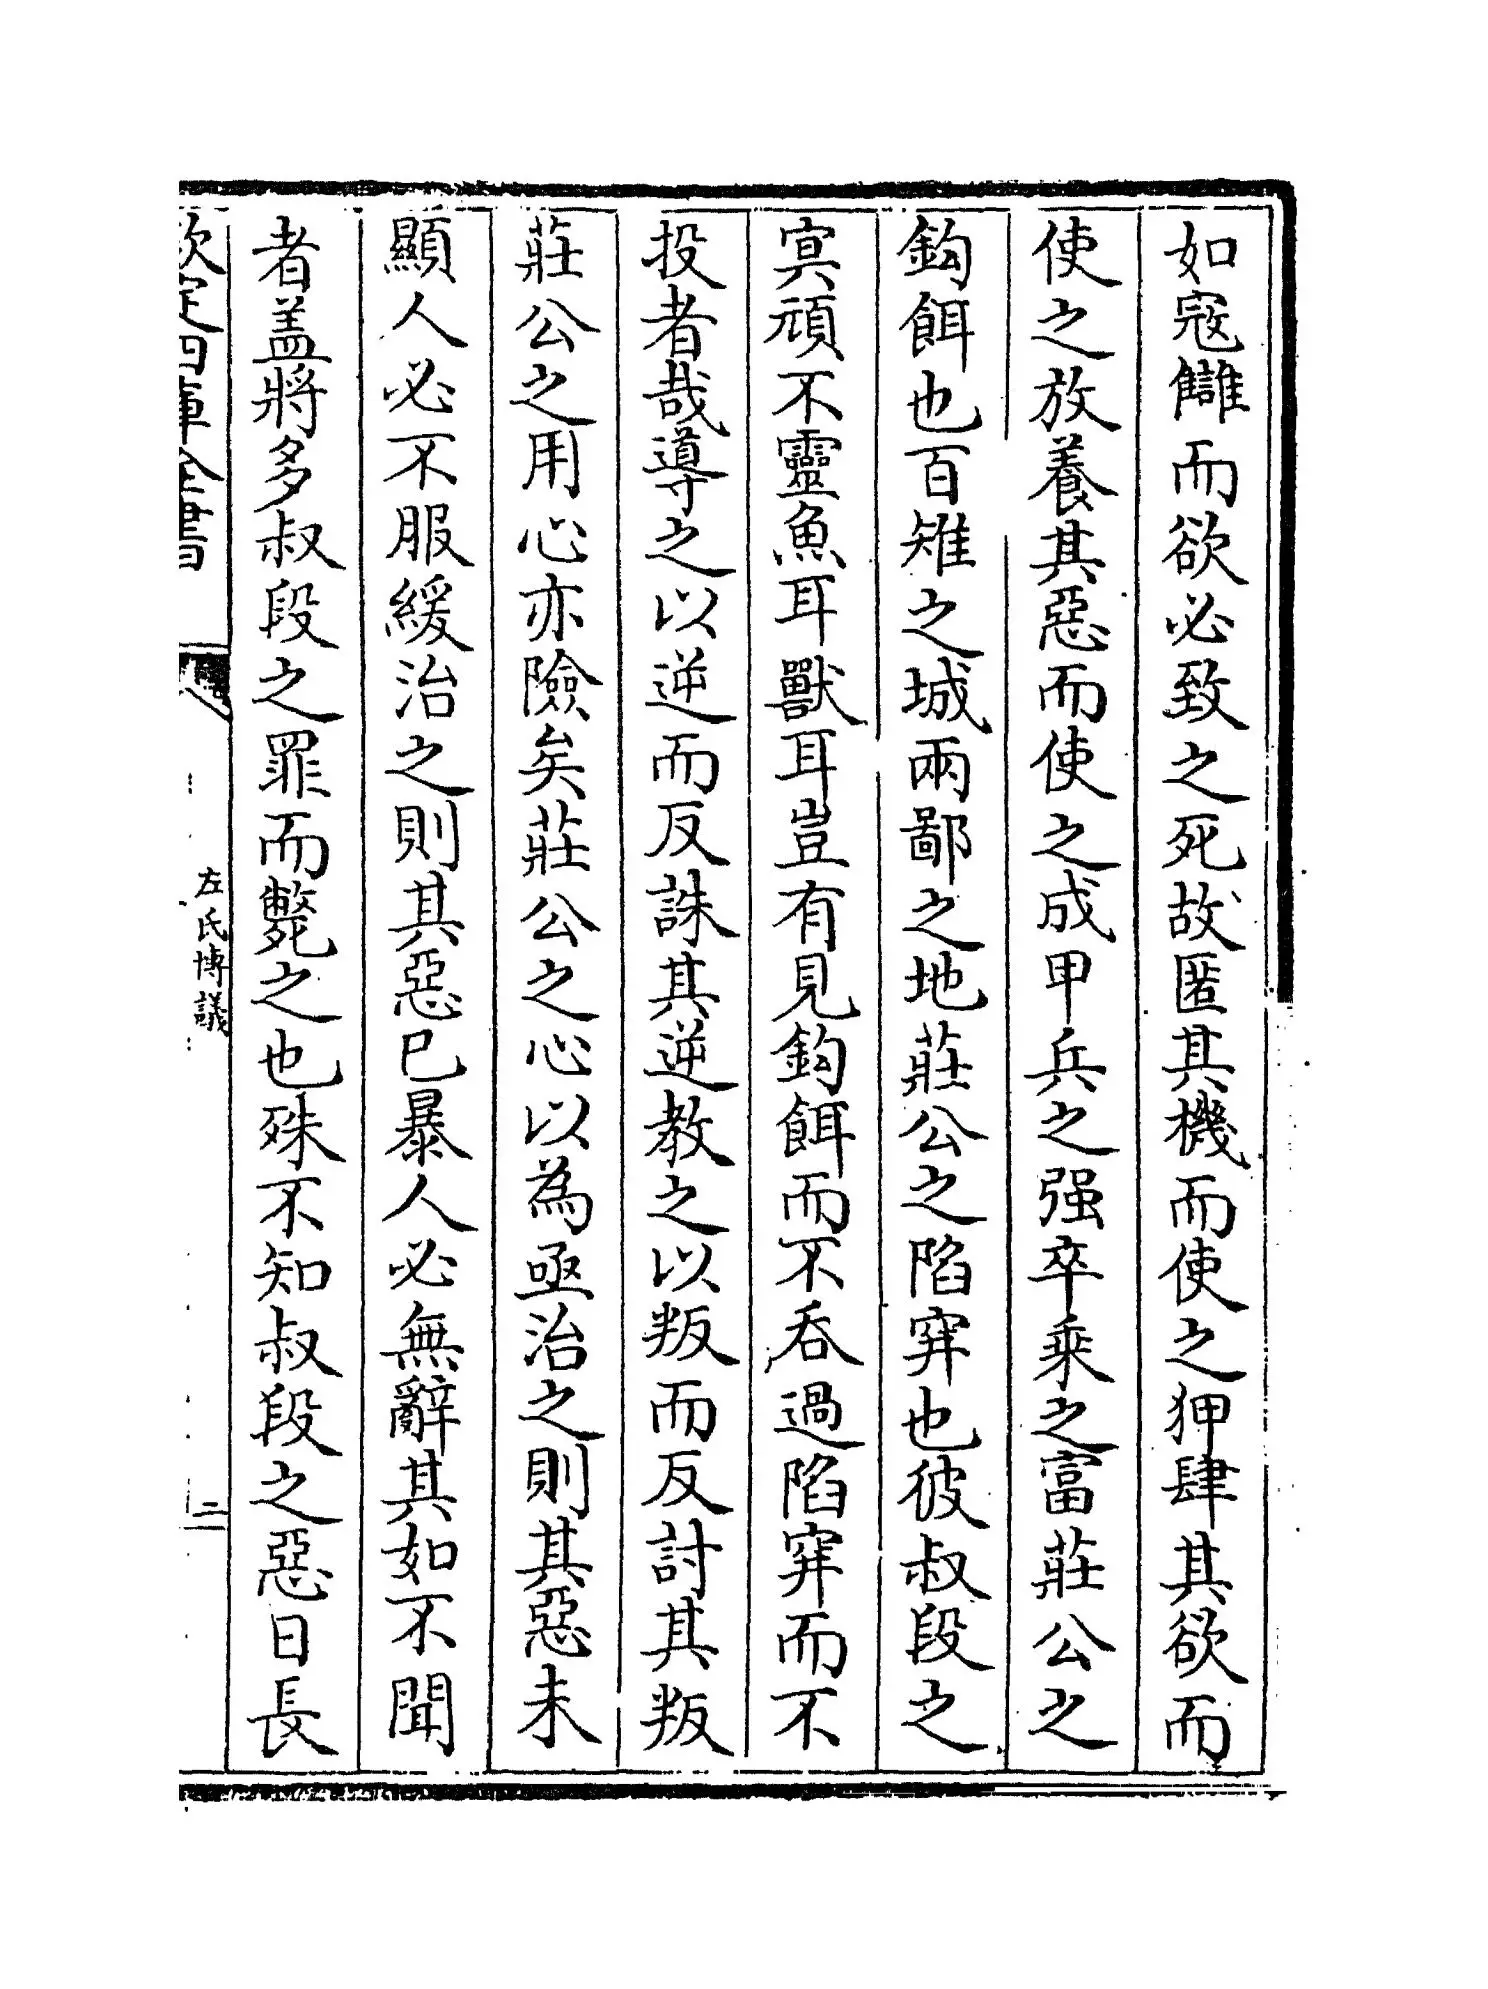 如寇讎而欲必致之死故匿其機而使之狎肆其欲而
使之放養其惡而使之成甲兵之强卒乘之富莊公之
鈎餌也百雉之城兩鄙之地莊公之陷穽也彼叔段之
冥頑不靈魚耳獸耳豈有見鈎餌而不吞過陷穽而不
投者哉導之以逆而反誅其逆教之以叛而反討其叛
莊公之用心亦險矣莊公之心以為亟治之則其惡未
顯人必不服緩治之則其惡已暴人必無辭其如不聞
者盖將多叔段之罪而斃之也殊不知叔段之惡日長
欽定四庫全書
左氏博議
二